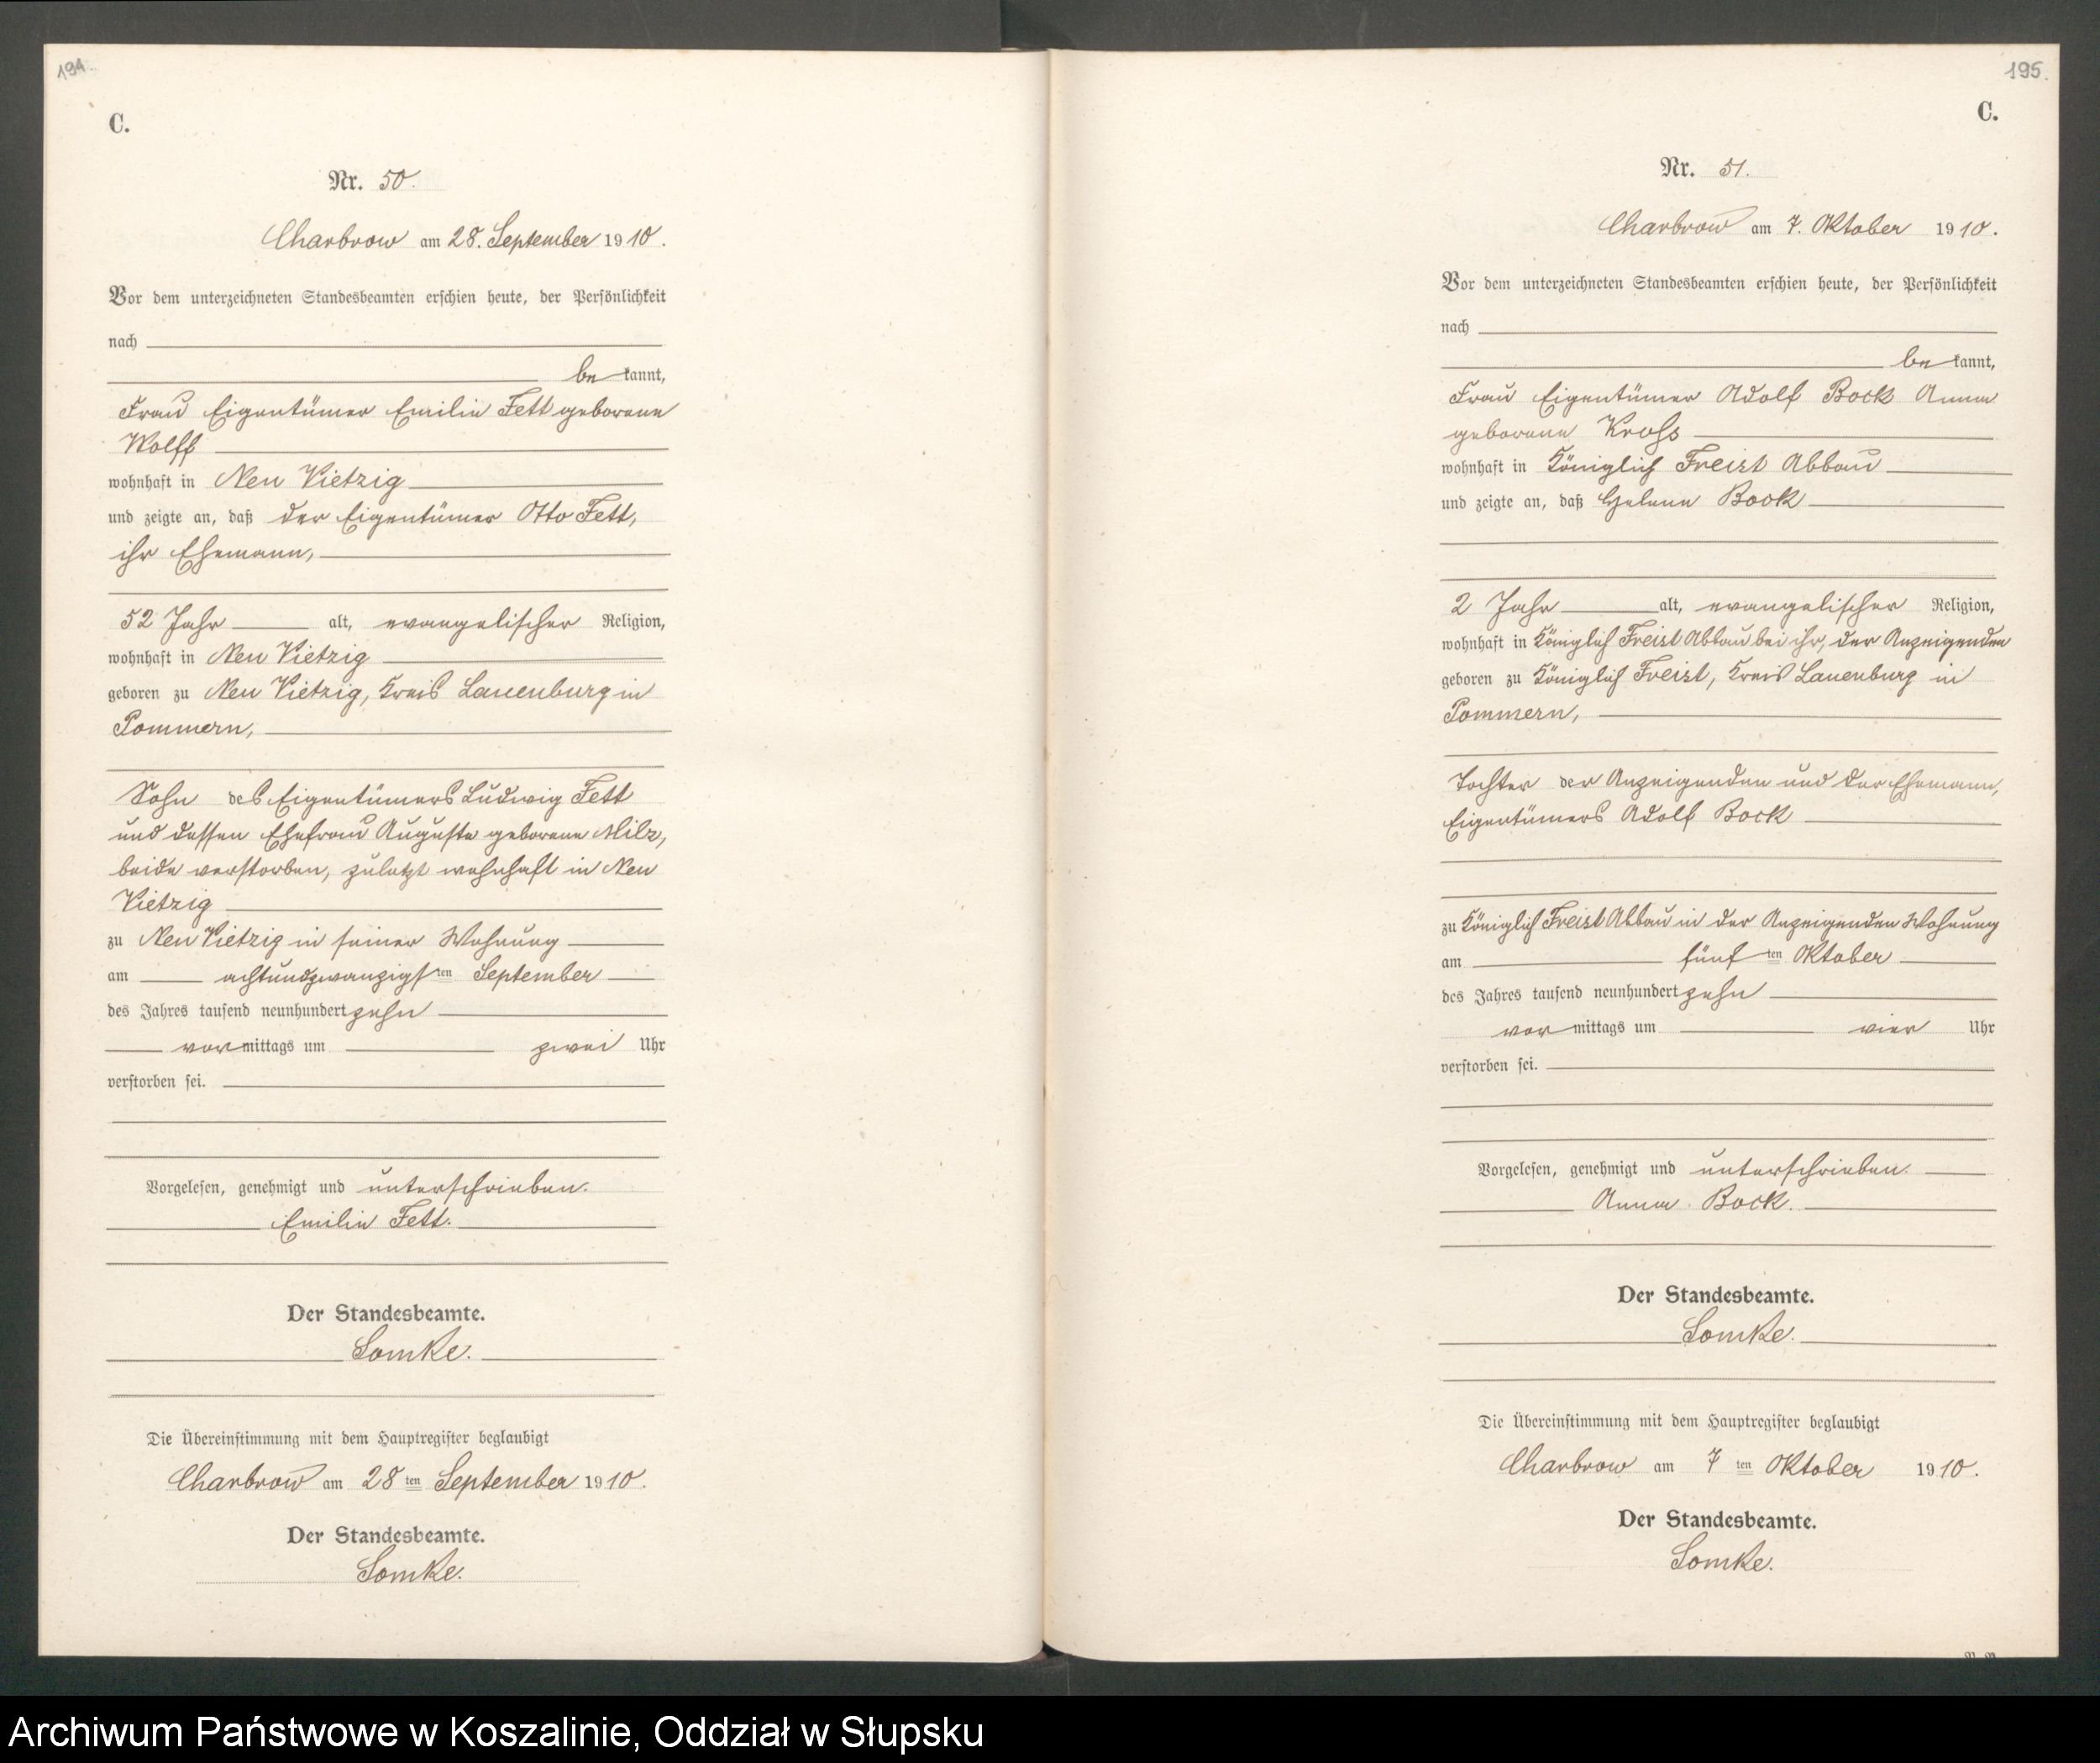 194.
C.
Nr. 50.
Charbrow am 28. September 1910.
Vor dem unterzeichneten Standesbeamten erschien heute, der Persönlichkeit
nach
bekannt,
Frau Eigentümer Emilie Fett geborene
Wolff
wohnhaft in Neu Vietzig
und zeigte an, daß der Eigentümer Otto Fett,
ihr Ehemann,
52 Jahr alt, evangelischer Religion,
wohnhaft in Neu Vietzig
geboren zu Neu Vietzig, Kreis Lauenburg in
Pommern,
Sohn des Eigentümers Ludwig Fett
und dessen Ehefrau Auguste geborene Milz,
beide verstorben, zuletzt wohnhaft in Neu
Vietzig
zu Neu Vietzig in seiner Wohnung
am achtundzwanzigsten September
des Jahres tausend neunhundert zehn
vormittags um zwei Uhr
verstorben sei.
Vorgelesen, genehmigt und unterschrieben.
Emilie Fett.
Der Standesbeamte.
Lomke.
Die Übereinstimmung mit dem Hauptregister beglaubigt
Charbrow am 28ten September 1910.
Der Standesbeamte.
Lomke.
195.
C.
Nr. 51.
Charbrow am 7. Oktober 1910.
Vor dem unterzeichneten Standesbeamten erschien heute, der Persönlichkeit
nach
bekannt,
Frau Eigentümer Adolf Bock Anna
geborene Kroß
wohnhaft in Königlich Freist Abbau
und zeigte an, daß Helene Bock
2 Jahr alt, evangelischer Religion,
wohnhaft in Königlich Freist Abbau bei ihr, der Anzeigenden
geboren zu Königlich Freist, Kreis Lauenburg in
Pommern,
Tochter der Anzeigenden und der Ehemann,
Eigentümers Adolf Bock
zu Königlich Freist Abbau in der Anzeigenden Wohnung
am fünften Oktober
des Jahres tausend neunhundert zehn
vormittags um vier Uhr
verstorben sei.
Vorgelesen, genehmigt und unterschrieben.
Anna Bock.
Der Standesbeamte.
Lomke.
Die Übereinstimmung mit dem Hauptregister beglaubigt
Charbrow am 7ten Oktober 1910.
Der Standesbeamte.
Lomke.
Archiwum Państwowe w Koszalinie, Oddział w Słupsku